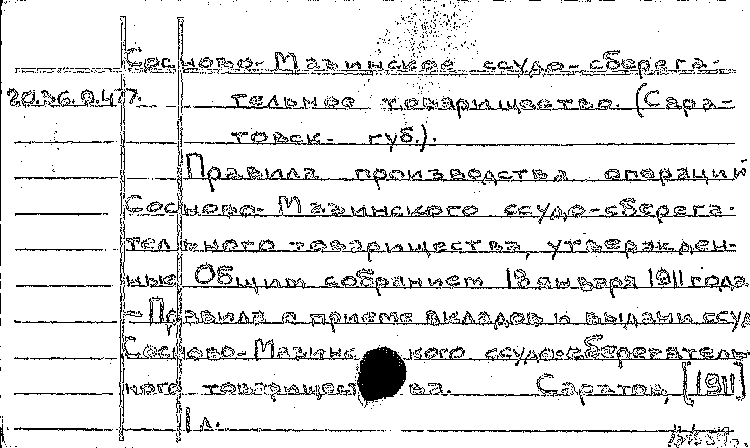 Сосново-Мазинское ссудо-сберега-
20.36.8.477. тельное товарищество. (Сара-
товск. губ.).
Правила производства операций
Сосново-Мазинского ссудо-сберега-
тельного товарищества, утвержден-
ные Общим собранием 18 января 1911 года
- Правила о приеме вкладов и выдачи ссуд
Сосново-Мазинского ссудо-сберегатель-
ного товарищества. Саратов, [1911]
1 л.